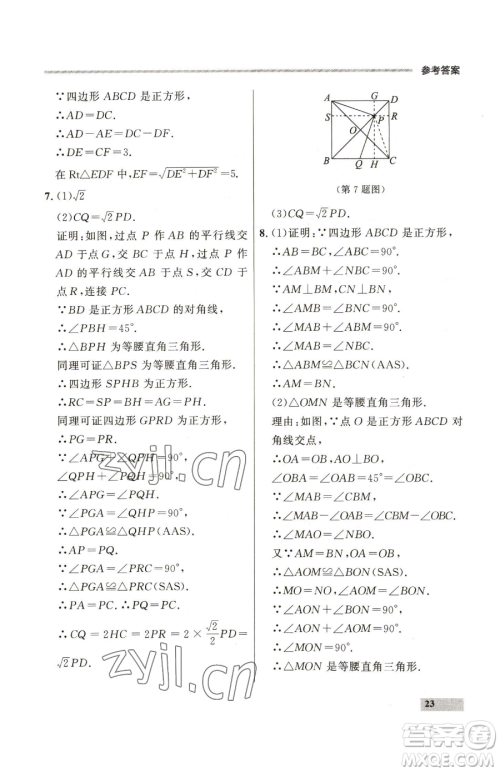 参考答案
∵四边形 ABCD 是正方形，
∴AD＝DC.
∴AD－AE＝DC－CF.
∴DE＝CF＝3.
在 Rt△EDF 中，EF＝√(DE²＋DF²)＝5.
7. (1)√2
(2)CQ＝√2PD.
证明：如图，过点 P 作 AB 的平行线交
AD 于点 G，交 BC 于点 H，过点
P 作 BC 的平行线交 AB 于点 S，交 CD 于
点 R，连接 PC.
∵BD 是正方形 ABCD 的对角线，
∴∠PBH＝45°.
∴△BPH 为等腰直角三角形.
同理可证△BPS 为等腰直角三角形.
∴四边形 SPHB 为正方形.
∴RC＝SP＝BH＝AG＝PH.
同理可证四边形 GPRD 为正方形，
∴PG＝PR.
∵∠APG＋∠QPH＝90°，
∠QPH＋∠PQH＝90°，
∴∠APG＝∠PQH.
∵∠PGA＝∠QHP＝90°，
∴△PGA≌△QHP(AAS).
∴AP＝PQ.
∵∠PGA＝∠PRC＝90°，
∴△PGA≌△PRC(SAS).
∴PA＝PC. ∴PC＝PQ.
∴CQ＝2HC＝2PR＝2×√2/2 PD＝
√2PD.
A G D
S P R
O
B Q H C
（第 7 题图）
(3)CQ＝√2PD.
8. (1)证明：∵四边形 ABCD 是正方形，
∴AB＝BC，∠ABC＝90°.
∴∠ABM＋∠NBC＝90°.
∵AM⊥BM，CN⊥BN，
∴∠AMB＝∠BNC＝90°.
∴∠MAB＋∠MBA＝90°.
∴∠MAB＝∠NBC.
∴△ABM≌△BCN(AAS).
(2)△OMN 是等腰直角三角形.
理由：如图，∵点 O 是正方形 ABCD 对
角线交点，
∴OA＝OB，∠AOB＝90°，
∠OBA＝∠OAB＝45°＝∠OBC.
∵∠MAB＝∠CBN，
∴∠MAO＝∠NBO.
又∵AM＝BN，
∴△AOM≌△BON(SAS).
∴MO＝NO，∠AOM＝∠BON.
∵∠AON＋∠BON＝90°，
∴∠AON＋∠AOM＝90°.
∴△MON 是等腰直角三角形.
23
zyjl.cn
zyjl.cn